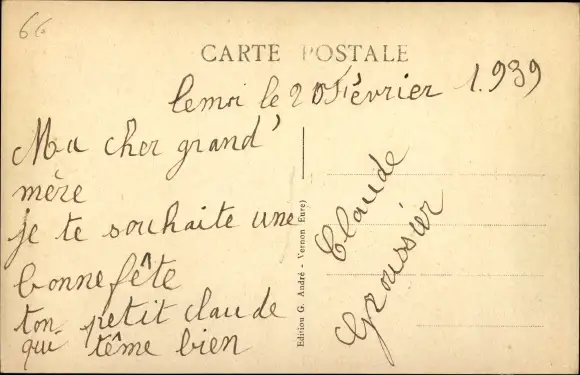 66
CARTE POSTALE
le 20 Février 1.939
Ma cher grand'
mère
je te souhaite une
bonne fête
ton petit claude
qui tême bien
Edition G. André - Vernon Eure)
Claude
Groussier